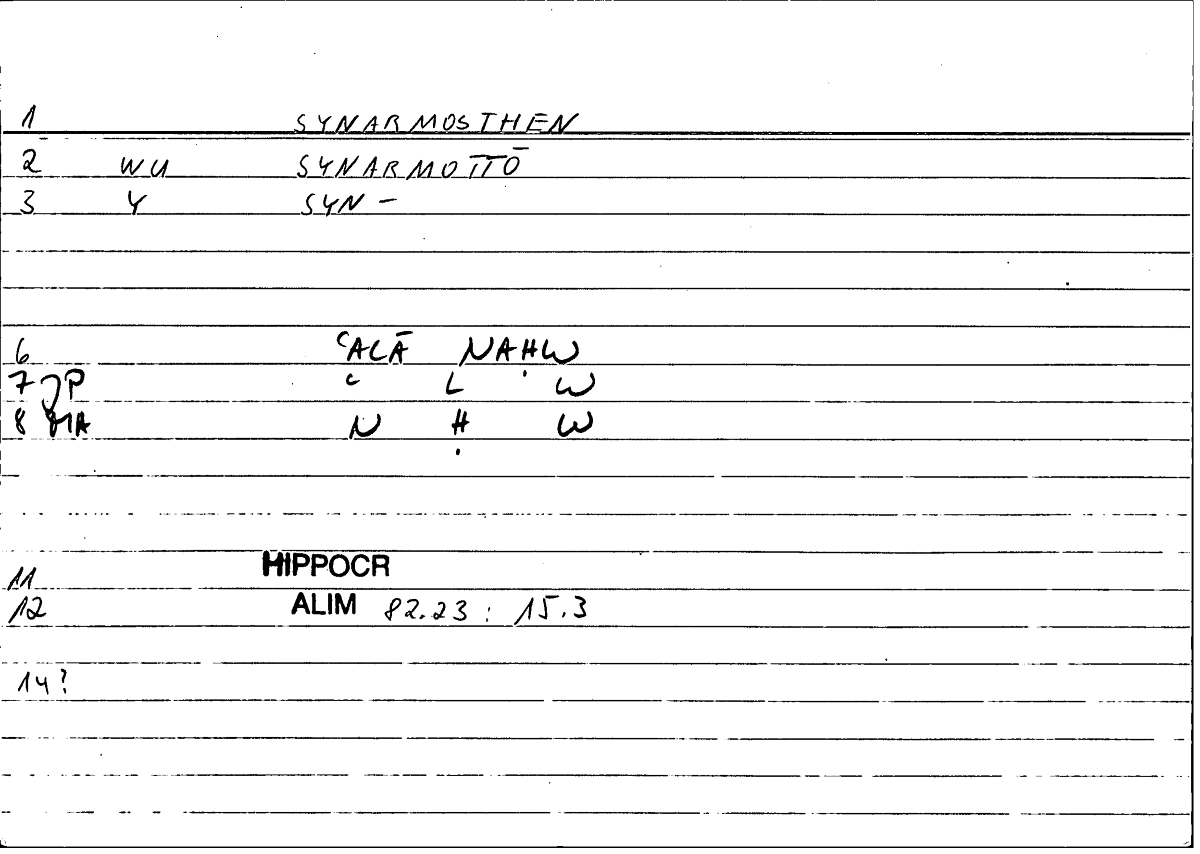 1 SYNARMOSTHEN
2 WU SYNARMOTTŌ
3 Y SYN -
6 ʿALĀ NAḤW
7 JP ʿ L W
8 MA N Ḥ W
11 HIPPOCR
12 ALIM 82.23 : 15.3
14?